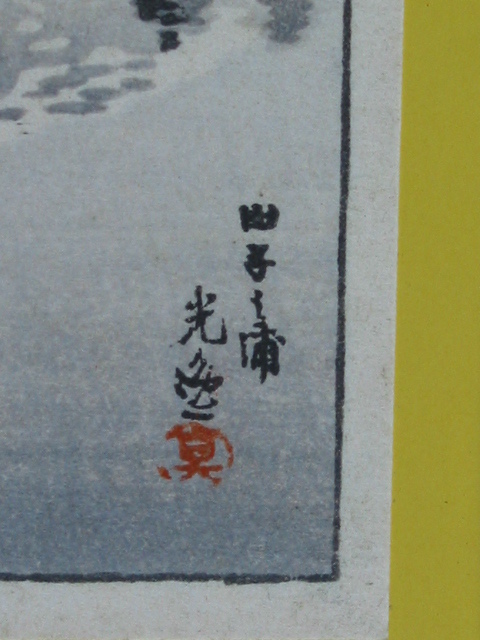 田子之浦
光逸